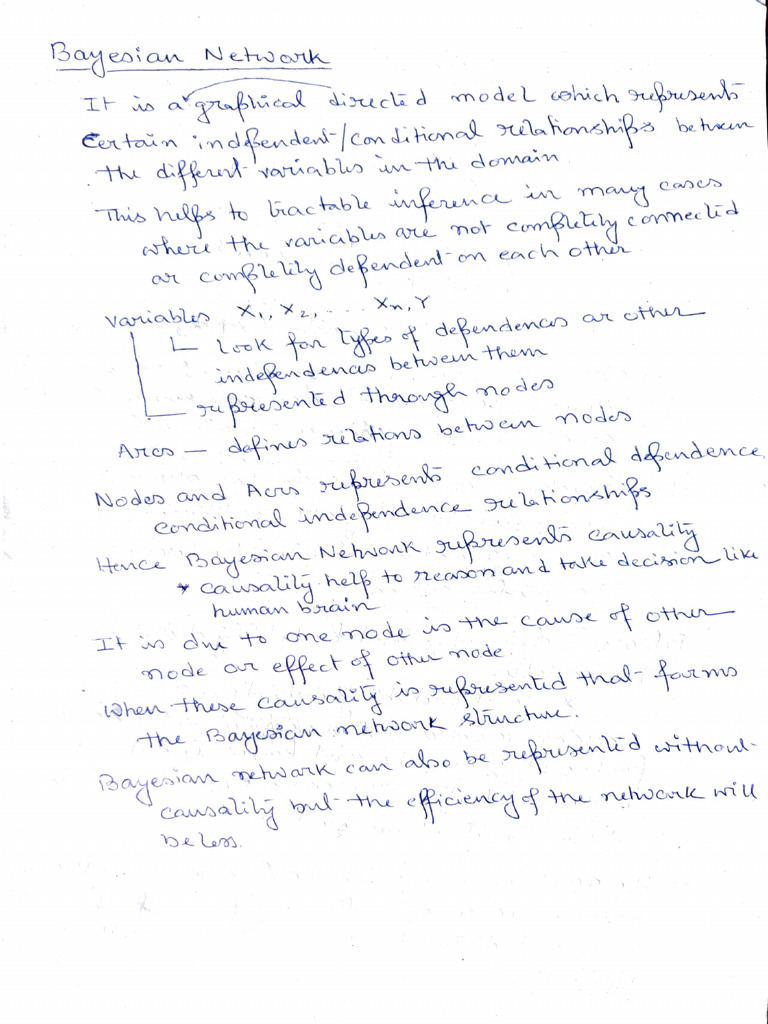 Bayesian Network
It is a graphical directed model which represents
Certain independent/conditional relationships between
the different variables in the domain.
This helps to tractable inference in many cases
where the variables are not completely connected
or completely dependent on each other
variables X1, X2, .... Xn, Y
look for types of dependences or other
independences between them
represented through nodes
Arcs — defines relations between nodes
Nodes and Acrs represents conditional dependence,
conditional independence relationships
Hence Bayesian Network represents causality
* causality help to reason and take decision like
human brain
It is due to one node is the cause of other
node or effect of other node.
When these causality is represented that forms
the Bayesian network structure.
Bayesian network can also be represented without
causality but the efficiency of the network will
be less.